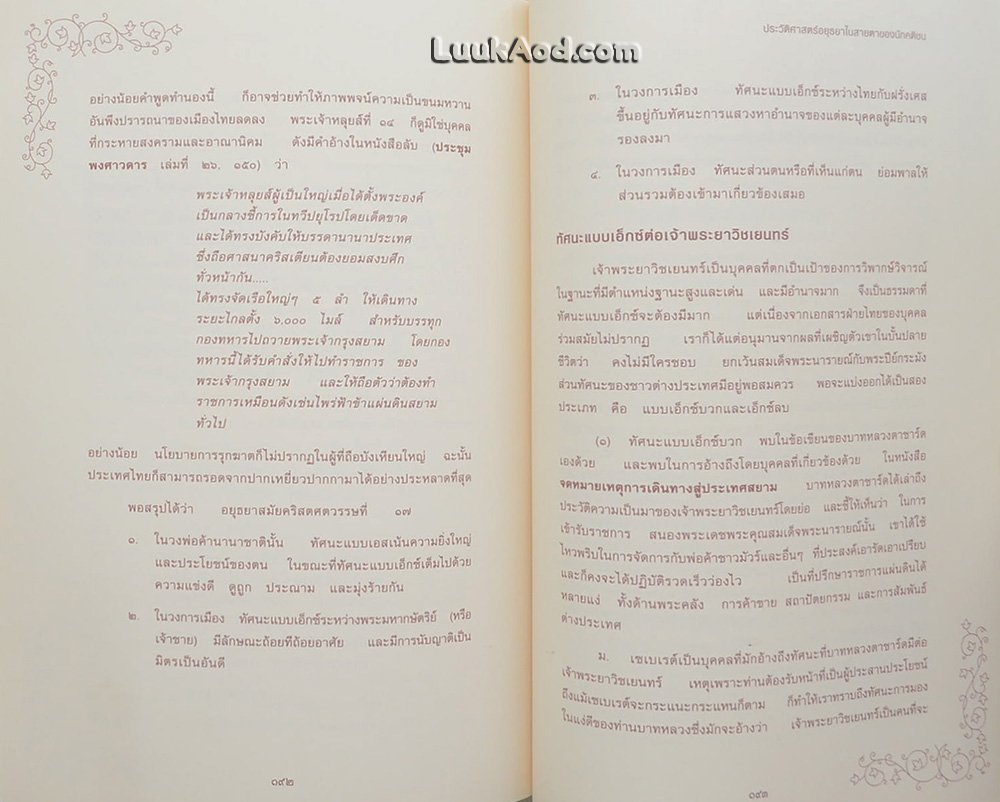 LuukAod.com
อย่างน้อยคำพูดทำนองนี้ ก็อาจช่วยทำให้ภาพพจน์ความเป็นขนมหวาน
อันพึงปรารถนาของเมืองไทยลดลง พระเจ้าหลุยส์ที่ ๑๔ ก็ดูมิใช่บุคคล
ที่กระหายสงครามและอาณานิคม ดังมีคำอ้างในหนังสือลับ (ประชุม
พงศาวดาร เล่มที่ ๒๖, ๑๕๐) ว่า
พระเจ้าหลุยส์ผู้เป็นใหญ่เมื่อได้ตั้งพระองค์
เป็นกลางชี้การในทวีปยุโรปโดยเด็ดขาด
และได้ทรงบังคับให้บรรดานานาประเทศ
ซึ่งถือศาสนาคริสเตียนต้องยอมสงบศึก
ทั่วหน้ากัน.....
ได้ทรงจัดเรือใหญ่ๆ ๕ ลำ ให้เดินทาง
ระยะไกลตั้ง ๖,๐๐๐ ไมล์ สำหรับบรรทุก
กองทหารไปถวายพระเจ้ากรุงสยาม โดยกอง
ทหารนี้ได้รับคำสั่งให้ไปทำราชการ ของ
พระเจ้ากรุงสยาม และให้ถือตัวว่าต้องทำ
ราชการเหมือนดังเช่นไพร่ฟ้าข้าแผ่นดินสยาม
ทั่วไป
อย่างน้อย นโยบายการรุกฆาตก็ไม่ปรากฏในผู้ที่ถือบังเหียนใหญ่ ฉะนั้น
ประเทศไทยก็สามารถรอดจากปากเหยี่ยวปากกามาได้อย่างประหลาดที่สุด
พอสรุปได้ว่า อยุธยาสมัยคริสตศตวรรษที่ ๑๗
๑. ในวงพ่อค้านานาชาตินั้น ทัศนะแบบเอสเน้นความยิ่งใหญ่
และประโยชน์ของตน ในขณะที่ทัศนะแบบเอ็กซ์เต็มไปด้วย
ความแข่งดี ดูถูก ประณาม และมุ่งร้ายกัน
๒. ในวงการเมือง ทัศนะแบบเอ็กซ์ระหว่างพระมหากษัตริย์ (หรือ
เจ้าชาย) มีลักษณะถ้อยทีถ้อยอาศัย และมีการนับญาติเป็น
มิตรเป็นอันดี
๑๙๒
ประวัติศาสตร์อยุธยาในสายตาของนักคติชน
๓. ในวงการเมือง ทัศนะแบบเอ็กซ์ระหว่างไทยกับฝรั่งเศส
ขึ้นอยู่กับทัศนะการแสวงหาอำนาจของแต่ละบุคคลผู้มีอำนาจ
รองลงมา
๔. ในวงการเมือง ทัศนะส่วนตนหรือที่เห็นแก่ตน ย่อมพาลให้
ส่วนรวมต้องเข้ามาเกี่ยวข้องเสมอ
ทัศนะแบบเอ็กซ์ต่อเจ้าพระยาวิชเยนทร์
เจ้าพระยาวิชเยนทร์เป็นบุคคลที่ตกเป็นเป้าของการวิพากษ์วิจารณ์
ในฐานะที่มีตำแหน่งฐานะสูงและเด่น และมีอำนาจมาก จึงเป็นธรรมดาที่
ทัศนะแบบเอ็กซ์จะต้องมีมาก แต่เนื่องจากเอกสารฝ่ายไทยของบุคคล
ร่วมสมัยไม่ปรากฏ เราก็ได้แต่อนุมานจากผลที่เผชิญตัวเขาในบั้นปลาย
ชีวิตว่า คงไม่มีใครชอบ ยกเว้นสมเด็จพระนารายณ์กับพระปีย์กระมัง
ส่วนทัศนะของชาวต่างประเทศมีอยู่พอสมควร พอจะแบ่งออกได้เป็นสอง
ประเภท คือ แบบเอ็กซ์บวกและเอ็กซ์ลบ
(๑) ทัศนะแบบเอ็กซ์บวก พบในข้อเขียนของบาทหลวงตาชาร์ด
เองด้วย และพบในการอ้างถึงโดยบุคคลที่เกี่ยวข้องด้วย ในหนังสือ
จดหมายเหตุการเดินทางสู่ประเทศสยาม บาทหลวงตาชาร์ดได้เล่าถึง
ประวัติความเป็นมาของเจ้าพระยาวิชเยนทร์โดยย่อ และชี้ให้เห็นว่า ในการ
เข้ารับราชการ สนองพระเดชพระคุณสมเด็จพระนารายณ์นั้น เขาได้ใช้
ไหวพริบในการจัดการกับพ่อค้าชาวมัวร์และอื่นๆ ที่ประสงค์เอารัดเอาเปรียบ
และก็คงจะได้ปฏิบัติรวดเร็วว่องไว เป็นที่ปรึกษาราชการแผ่นดินได้
หลายแง่ ทั้งด้านพระคลัง การค้าขาย สถาปัตยกรรม และการสัมพันธ์
ต่างประเทศ
ม. เซเบเรต์เป็นบุคคลที่มักอ้างถึงทัศนะที่บาทหลวงตาชาร์ดมีต่อ
เจ้าพระยาวิชเยนทร์ เหตุเพราะท่านต้องรับหน้าที่เป็นผู้ประสานประโยชน์
ถึงแม้เซเบเรต์จะกระแนะกระแหนก็ตาม ก็ทำให้เราทราบถึงทัศนะการมอง
ในแง่ดีของท่านบาทหลวงซึ่งมักจะอ้างว่า เจ้าพระยาวิชเยนทร์เป็นคนที่จะ
๑๙๓